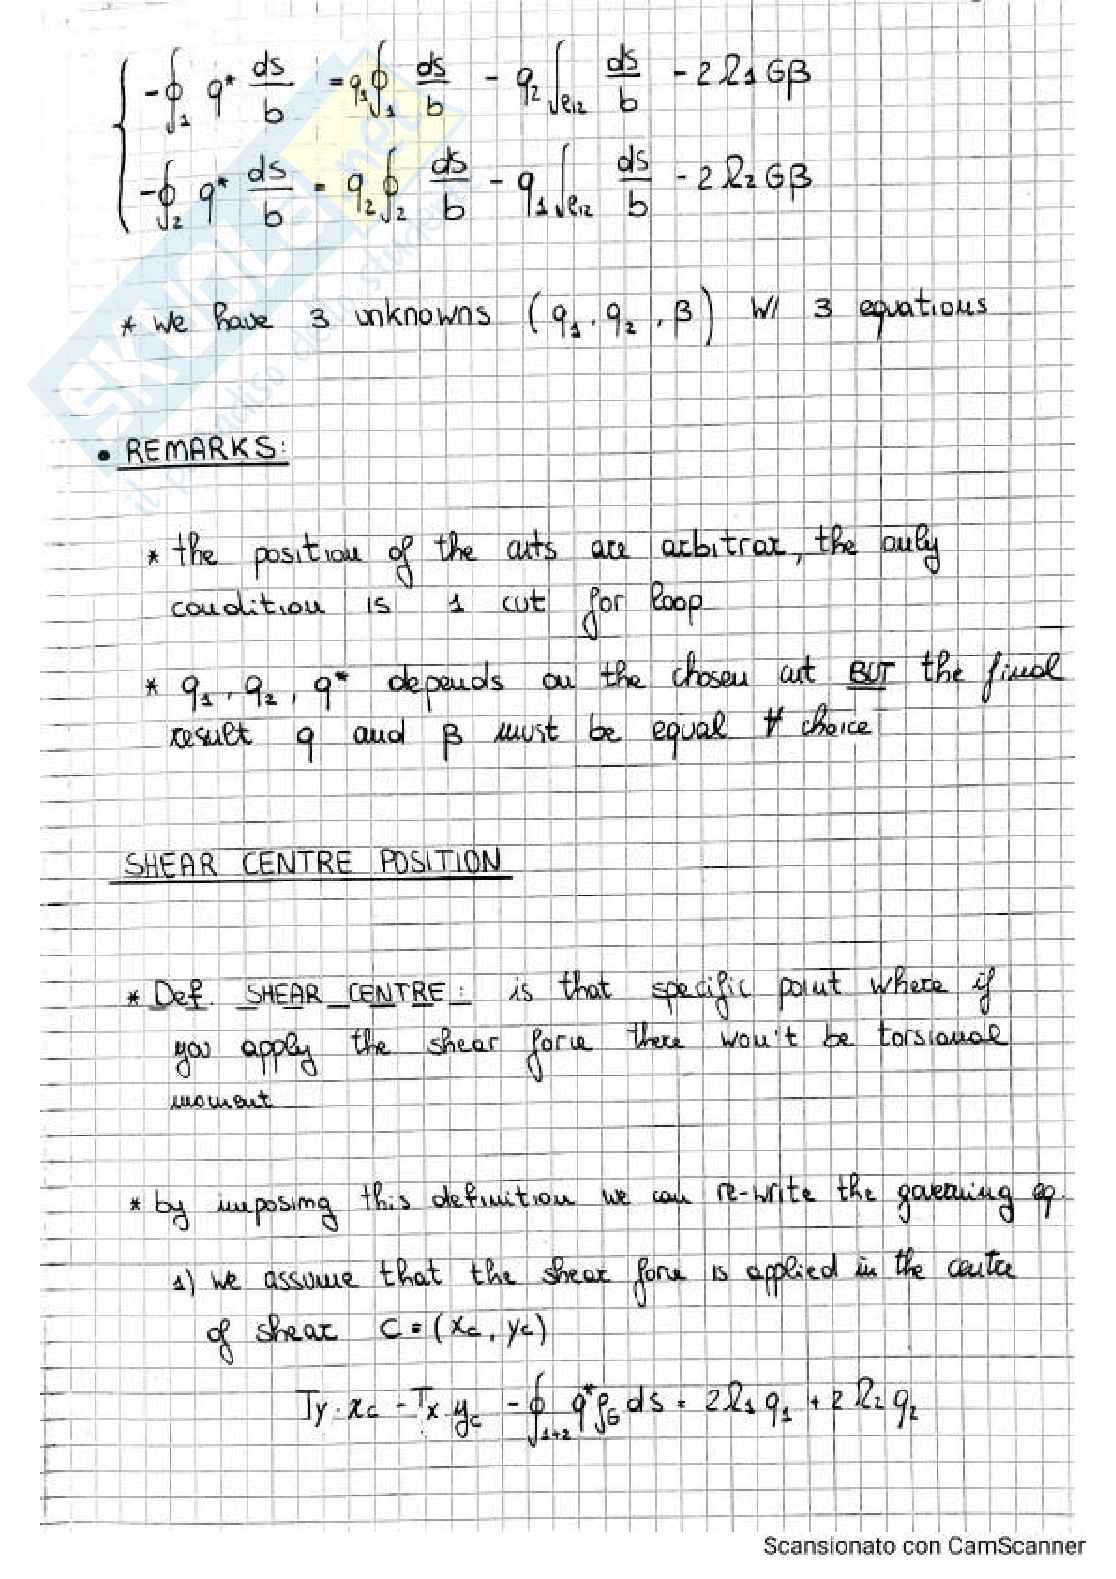 -∮₁ q* ds/b = q₁∮₁ ds/b - q₂∫ℓ₁₂ ds/b - 2Ω₁Gβ
-∮₂ q* ds/b = q₂∮₂ ds/b - q₁∫ℓ₁₂ ds/b - 2Ω₂Gβ
* we have 3 unknowns (q₁, q₂, β) w/ 3 equations
• REMARKS:
* the position of the cuts are arbitrar, the only
condition is 1 cut for loop
* q₁, q₂, q* depends on the chosen cut BUT the final
result q and β must be equal ∀ choice
SHEAR CENTRE POSITION
* Def. SHEAR CENTRE: is that specific point where if
you apply the shear force there won't be torsional
moment
* by imposing this definition we can re-write the governing eq.
1) we assume that the shear force is applied in the centre
of shear C = (xc, yc)
Ty·xc - Tx·yc - ∮₁₊₂ q*ρG ds = 2Ω₁q₁ + 2Ω₂q₂
SKUOLA.net
il paradiso dello studente
Scansionato con CamScanner